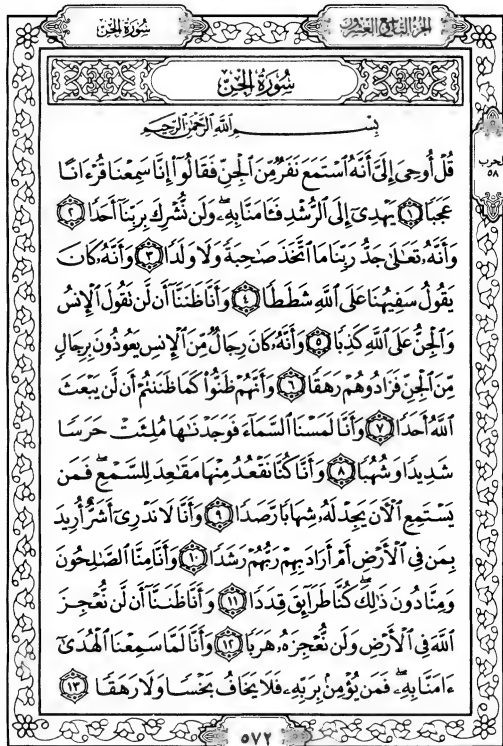 سُورَةُ الجِنِّ
الجُزْءُ التَّاسِعُ وَالعِشْرُونَ
سُورَةُ الجِنِّ
بِسْمِ اللَّهِ الرَّحْمَٰنِ الرَّحِيمِ
قُلْ أُوحِىَ إِلَىَّ أَنَّهُ ٱسْتَمَعَ نَفَرٌ مِّنَ ٱلْجِنِّ فَقَالُوٓا۟ إِنَّا سَمِعْنَا قُرْءَانًا
عَجَبًا ١ يَهْدِىٓ إِلَى ٱلرُّشْدِ فَـَٔامَنَّا بِهِۦ ۖ وَلَن نُّشْرِكَ بِرَبِّنَآ أَحَدًا ٢
وَأَنَّهُۥ تَعَٰلَىٰ جَدُّ رَبِّنَا مَا ٱتَّخَذَ صَٰحِبَةً وَلَا وَلَدًا ٣ وَأَنَّهُۥ كَانَ
يَقُولُ سَفِيهُنَا عَلَى ٱللَّهِ شَطَطًا ٤ وَأَنَّا ظَنَنَّآ أَن لَّن تَقُولَ ٱلْإِنسُ
وَٱلْجِنُّ عَلَى ٱللَّهِ كَذِبًا ٥ وَأَنَّهُۥ كَانَ رِجَالٌ مِّنَ ٱلْإِنسِ يَعُوذُونَ بِرِجَالٍ
مِّنَ ٱلْجِنِّ فَزَادُوهُمْ رَهَقًا ٦ وَأَنَّهُمْ ظَنُّوا۟ كَمَا ظَنَنتُمْ أَن لَّن يَبْعَثَ
ٱللَّهُ أَحَدًا ٧ وَأَنَّا لَمَسْنَا ٱلسَّمَآءَ فَوَجَدْنَٰهَا مُلِئَتْ حَرَسًا
شَدِيدًا وَشُهُبًا ٨ وَأَنَّا كُنَّا نَقْعُدُ مِنْهَا مَقَٰعِدَ لِلسَّمْعِ ۖ فَمَن
يَسْتَمِعِ ٱلْـَٔانَ يَجِدْ لَهُۥ شِهَابًا رَّصَدًا ٩ وَأَنَّا لَا نَدْرِىٓ أَشَرٌّ أُرِيدَ
بِمَن فِى ٱلْأَرْضِ أَمْ أَرَادَ بِهِمْ رَبُّهُمْ رَشَدًا ١٠ وَأَنَّا مِنَّا ٱلصَّٰلِحُونَ
وَمِنَّا دُونَ ذَٰلِكَ ۖ كُنَّا طَرَآئِقَ قِدَدًا ١١ وَأَنَّا ظَنَنَّآ أَن لَّن نُّعْجِزَ
ٱللَّهَ فِى ٱلْأَرْضِ وَلَن نُّعْجِزَهُۥ هَرَبًا ١٢ وَأَنَّا لَمَّا سَمِعْنَا ٱلْهُدَىٰٓ
ءَامَنَّا بِهِۦ ۖ فَمَن يُؤْمِنۢ بِرَبِّهِۦ فَلَا يَخَافُ بَخْسًا وَلَا رَهَقًا ١٣
الحزب
٥٨
٥٧٢